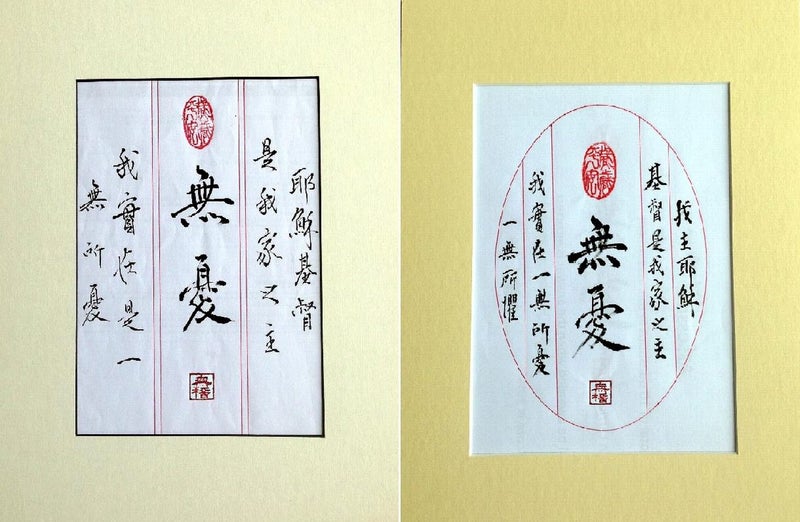 耶穌基督
是我家之主
無憂
我實在是一
無所憂
我主耶穌
基督是我家之主
無憂
我實在一無所憂
一無所懼